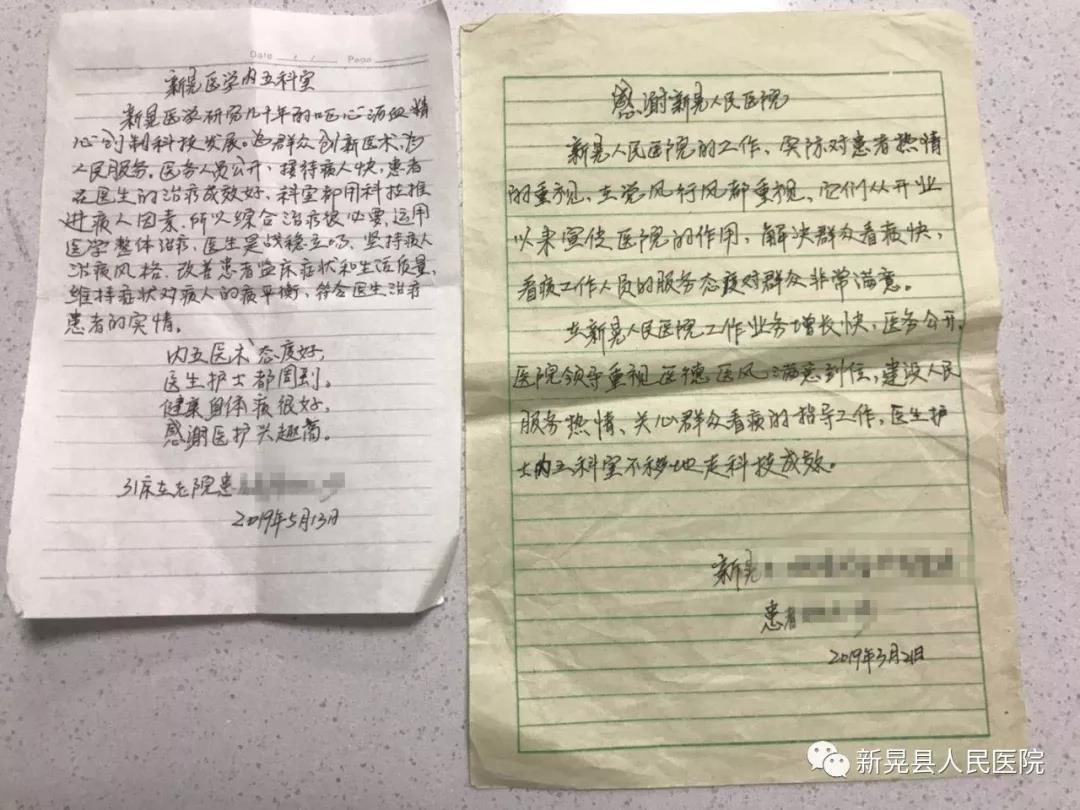 Date / / Page
新晃医学内五科室
新晃医学研究几十年的呕心沥血精
心创制科技发展。为群众创新医术,为
人民服务。医务人员公开,接待病人快,患者
在医生的治疗成效好,科室都用科技推
进病人因素,所以综合治疗很必要,运用
医学整体治疗,医生
稳立
坚持病人
治病风格、改善患者临床症状和生活质量,
维持症状对病人的病平衡,符合医生治疗
患者的实情。
内五医术态度好,
医生护士都周到。
健康自体病很好,
感谢医护兴趣高。
31床在
院患
2019年5月13日
感谢新晃人民医院
新晃人民医院的工作、实际对患者热情
的重视、在党风行风都重视、它们从开业
以来宣传医院的作用,解决群众看病快,
看病工作人员的服务态度对群众非常满意。
在新晃人民医院工作业务增长快、医务公开,
医院领导重视医德医风满意到位,建设人民
服务热情、关心群众看病的指导工作,医生护
士内五科室不移地走科技成效。
新晃
患者
2019年3月21日
新晃县人民医院